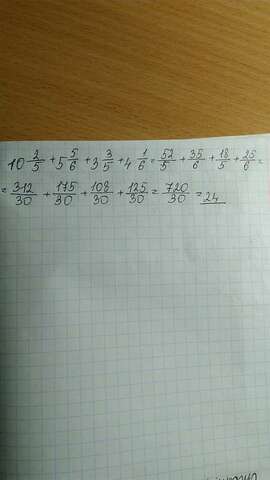 10 2/5 + 5 5/6 + 3 3/5 + 4 1/6 = 52/5 + 35/6 + 18/5 + 25/6 =
= 312/30 + 175/30 + 108/30 + 125/30 = 720/30 = 24